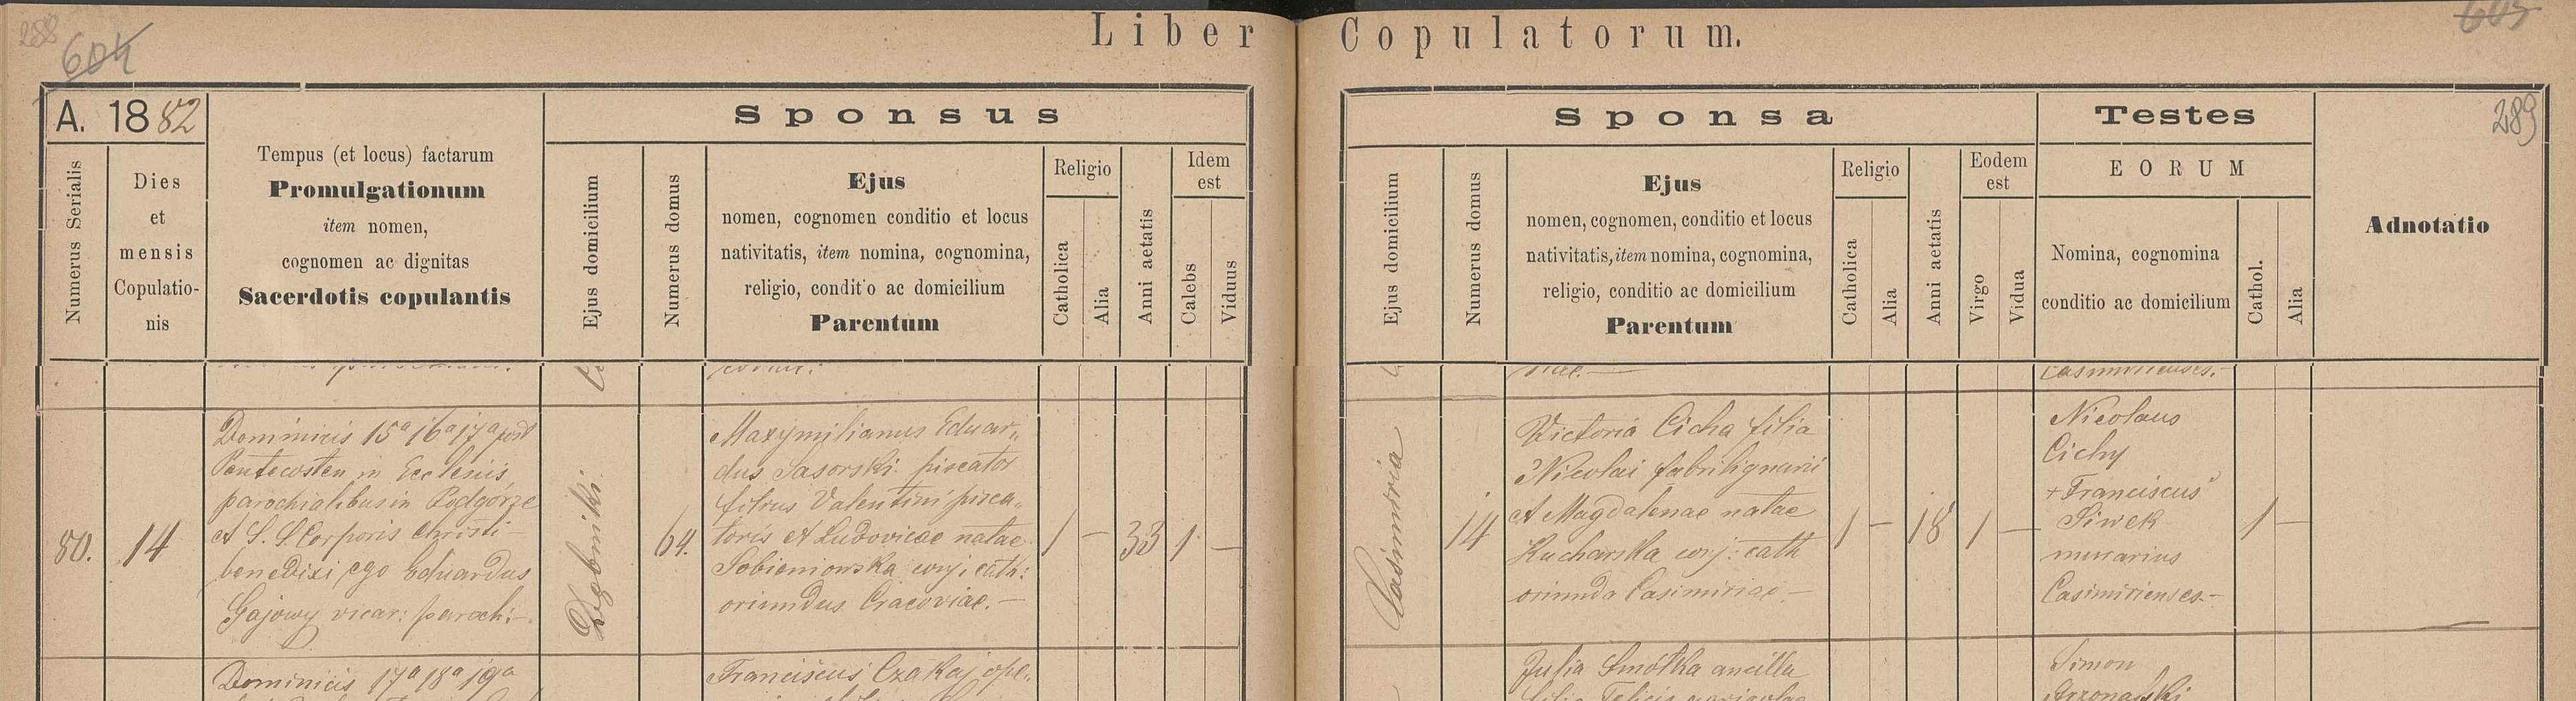 288
604
Liber Copulatorum.
605
289
A. 1882
Numerus Serialis
Dies
et
mensis
Copulatio-
nis
Tempus (et locus) factarum
Promulgationum
item nomen,
cognomen ac dignitas
Sacerdotis copulantis
Sponsus
Ejus domicilium
Numerus domus
Ejus
nomen, cognomen conditio et locus
nativitatis, item nomina, cognomina,
religio, conditio ac domicilium
Parentum
Religio
Catholica
Alia
Anni aetatis
Idem
est
Calebs
Viduus
Sponsa
Ejus domicilium
Numerus domus
Ejus
nomen, cognomen, conditio et locus
nativitatis, item nomina, cognomina,
religio, conditio ac domicilium
Parentum
Religio
Catholica
Alia
Anni aetatis
Eodem
est
Virgo
Vidua
Testes
EORUM
Nomina, cognomina
conditio ac domicilium
Cathol.
Alia
Adnotatio
Casimirienses.-
80.
14
Dominicis 15a 16a 17a post
Pentecosten in Ecclesiis
parochialibus in Podgórze
et S. S. Corporis Christi -
benedixi ego Eduardus
Gajowy vicar: paroch:-
64.
Maxymilianus Eduar„
dus Sasorski piscator
filius Valentini pisca„
toris et Ludovicae natae
conj: cath:
oriundus Cracoviae.-
1 - 33 1 -
Casimiria
14
Victoria Cicha filia
Nicolai fabrilignarii
et Magdalenae natae
Kucharska conj: cath
oriunda Casimiriae.-
1 - 18 1 -
Nicolaus
Cichy
+ Franciscus
Siwek
murarius
Casimirienses.-
1 -
Dominicis 17a 18a 19a
Franciscus Czakaj ope„
Julia Smótka ancilla
filia Felicis
Simon